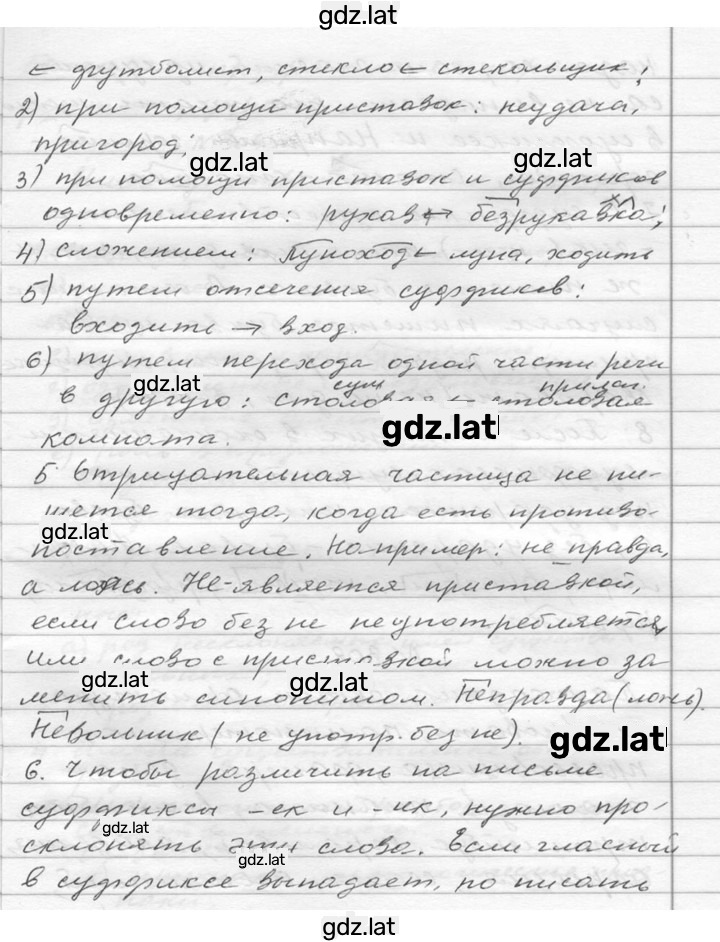 gdz.lat
← футболист, стекло ← стекольщик;
2) при помощи приставок: неудача,
пригород;
gdz.lat gdz.lat
3) при помощи приставок и суффиксов
одновременно: рукав ↔ безрукавка;
4) сложением: Луноход ← луна, ходить
5) путем отсечения суффиксов:
входить → вход.
6) путем перехода одной части речи
gdz.lat сущ прилаг.
в другую: столовая ← столовая
gdz.lat
комната.
5. Отрицательная частица не пи-
шется тогда, когда есть противо-
gdz.lat
поставление. Например: не правда,
а ложь. Не-является приставкой,
если слово без не неупотребляется,
или слово с приставкой можно за
gdz.lat gdz.lat
менить синонимом. Неправда (ложь).
Невольник (не употр. без не).
gdz.lat
6. Чтобы различить на письме
суффиксы -ек и -ик, нужно про-
gdz.lat
склонять эти слова. Если гласный
gdz.lat
в суффиксе выпадает, по писать
gdz.lat